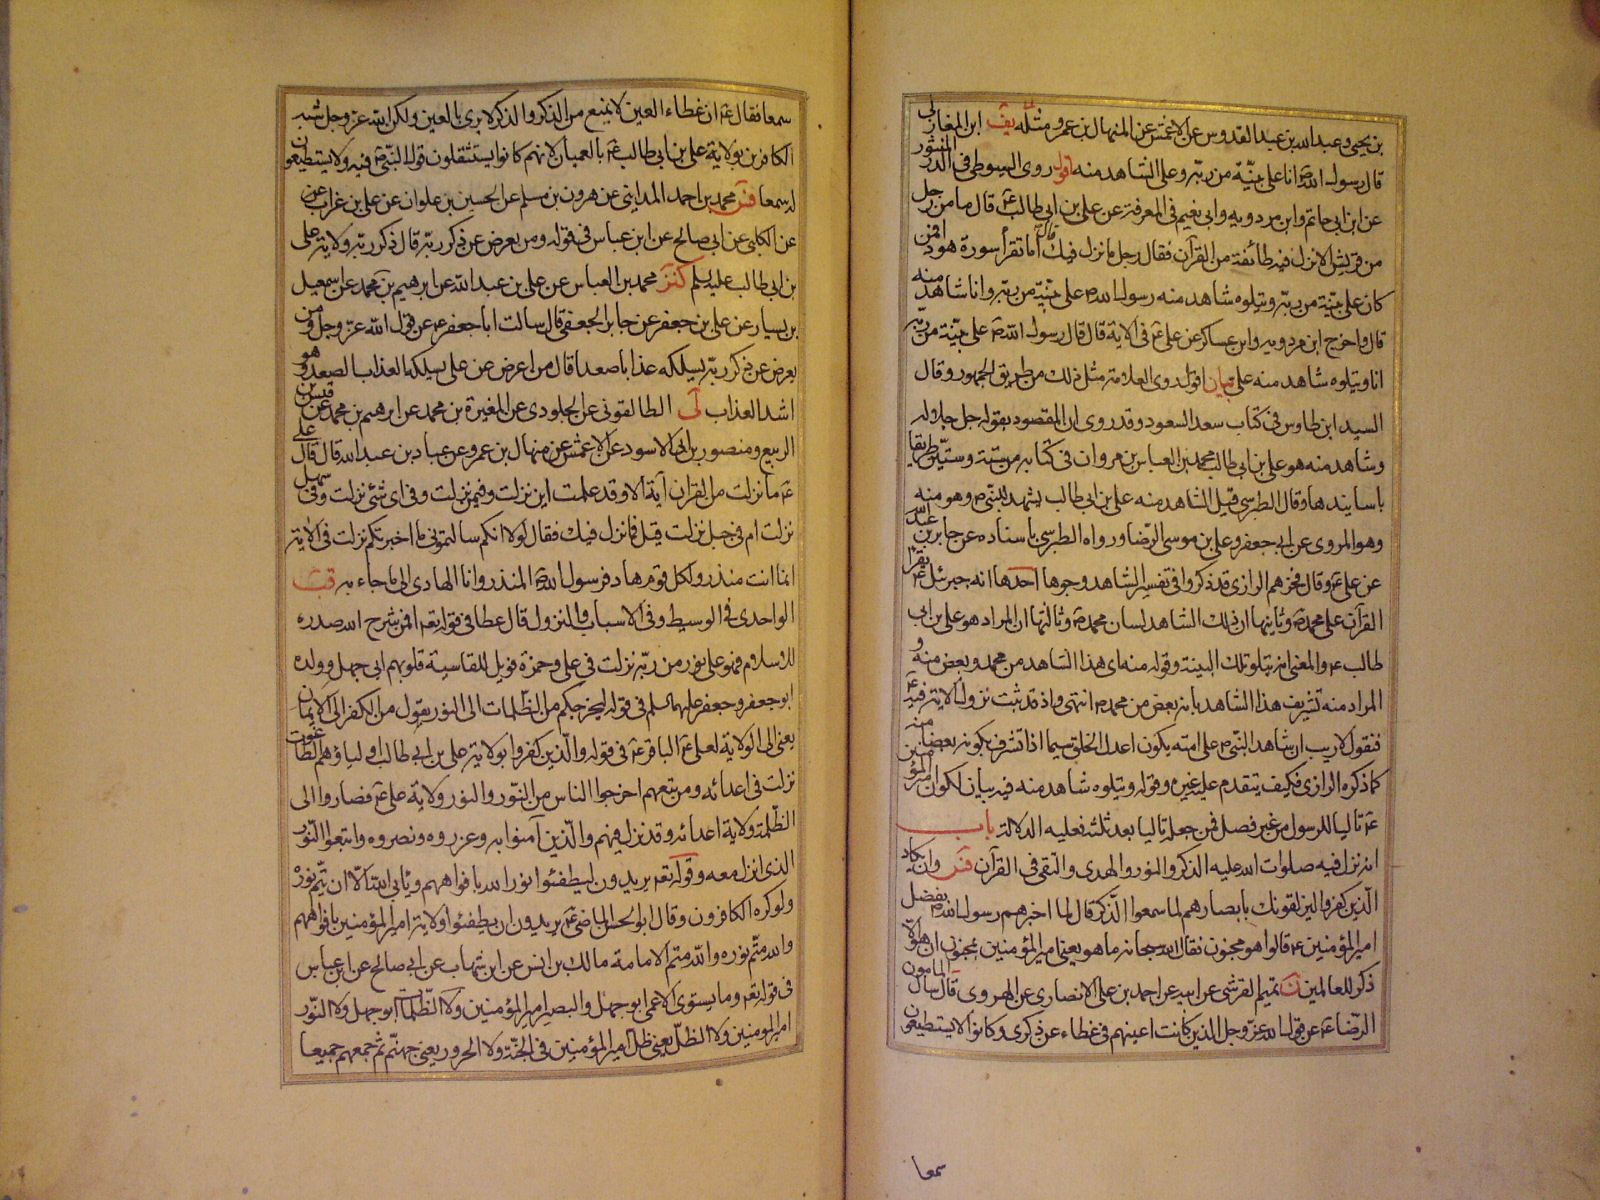 بن يحيى وعبد الله بن عبد القدوس عن الاعمش عن المنهال بن عمرو مثله يف ابن المغازلى
قال رسول الله ص انا على بينة من ربه وعلى الشاهد منه اقول روى السيوطى فى الدر المنثور
عن ابن ابى حاتم وابن مردويه وابى نعيم فى المعرفة عن على بن ابى طالب ع قال ما من رجل
من قريش الا نزل فيه طائفة من القرآن فقال رجل ما نزل فيك قال اما تقرأ سورة هود افمن
كان على بينة من ربه ويتلوه شاهد منه رسول الله ص على بينة من ربه وانا شاهد منه
قال واخرج ابن مردويه وابن عساكر عن على ع فى الاية قال قال رسول الله ص على بينة من ربه
انا ويتلوه شاهد منه على بيان اقول روى العلامة مثل ذلك من طريق الجمهور وقال
السيد ابن طاوس فى كتاب سعد السعود وقد روى ان المقصود بقوله جل جلاله
وشاهد منه هو على بن ابى طالب محمد بن العباس بن مروان فى كتابه من ستة وستين طريقا
باسانيدها وقال الطبرسى قيل الشاهد منه على بن ابى طالب يشهد للنبى ص وهو منه
وهو المروى عن ابى جعفر وعلى بن موسى الرضا ورواه الطبرسى باسناده عن جابر بن عبد الله
عن على ع وقال فخرهم الرازى قد ذكروا فى تفسير الشاهد وجوها احدها انه جبرئيل ع يقرأ
القرآن على محمد ص وثانيها ان ذلك الشاهد لسان محمد ص وثالثها ان المراد هو على بن ابى
طالب ع والمعنى انه يتلو تلك البينة وقوله منه اى هذا الشاهد من محمد وبعض منه و
المراد منه تشريف هذا الشاهد بانه بعض من محمد ص انتهى واذ قد ثبت نزول الاية فيه ع
فنقول لا ريب ان شاهد النبى ص على امته يكون اعدل الخلق سيما اذا تشرف بكونه بعضا منه
كما ذكره الرازى فكيف يتقدم عليه غيره وقوله ويتلوه شاهد منه فيه بيان لكون امير المؤمنين
ع تاليا للرسول من غير فصل فمن جعله تاليا بعد ثلثة فعليه الدلالة باب
انه نزل فيه صلوات الله عليه الذكر والنور والهدى والتقى فى القرآن فس وان يكاد
الذين كفروا ليزلقونك بابصارهم لما سمعوا الذكر قال لما اخبرهم رسول الله ص بفضل
امير المؤمنين ع قالوا هو مجنون فقال الله سبحانه وما هو يعنى امير المؤمنين بمجنون ان هو الا
ذكر للعالمين ن تميم القرشى عن ابيه عن احمد بن على الانصارى عن الهروى قال سال المامون
الرضا ع عن قول الله عز وجل الذين كانت اعينهم فى غطاء عن ذكرى وكانوا لا يستطيعون
سمعا
سمعا فقال ع ان غطاء العين لا يمنع من الذكر والذكر لا يرى بالعين ولكن الله عز وجل شبه
الكافرين بولاية على بن ابى طالب ع بالعميان لانهم كانوا يستثقلون قول النبى ص فيه ولا يستطيعون
له سمعا فس محمد بن احمد المداينى عن هرون بن مسلم عن الحسين بن علوان عن على بن غراب عن
عن الكلبى عن ابى صالح عن ابن عباس فى قوله ومن يعرض عن ذكر ربه قال ذكر ربه ولاية على
بن ابى طالب عليه السلم كنز محمد بن العباس عن على بن عبد الله عن ابرهيم بن محمد عن اسمعيل
بن يسار عن على بن جعفر عن جابر الجعفى قال سالت ابا جعفر ع عن قول الله عز وجل ومن
يعرض عن ذكر ربه يسلكه عذابا صعدا قال من اعرض عن على يسلكه العذاب الصعد وهو
اشد العذاب لى الطالقونى عن الجلودى عن المغيرة بن محمد عن ابرهيم بن محمد عن قيس بن
الربيع ومنصور بن ابى الاسود عن الاعمش عن منهال بن عمرو عن عباد بن عبد الله قال قال على
ع ما نزلت من القران آية الا وقد علمت اين نزلت وفيمن نزلت وفى اى شئى نزلت وفى سهل
نزلت ام فى جبل نزلت قيل فما نزل فيك فقال لولا انكم سالتمونى ما اخبرتكم نزلت فى الاية
انما انت منذر ولكل قوم هاد فرسول الله ص المنذر وانا الهادى الى ما جاء به قب
الواحدى فى الوسيط وفى الاسباب والنزول قال عطا فى قوله تعه افمن شرح الله صدره
للاسلام فهو على نور من ربه نزلت فى على وحمزة فويل للقاسية قلوبهم ابى جهل وولده
ابو جعفر وجعفر عليهما السلم فى قوله ليخرجكم من الظلمات الى النور يقول من الكفر الى الايمان
يعنى الى الولاية لعلى ع الباقر ع فى قوله والذين كفروا بولاية على بن ابى طالب اولياؤهم الطاغوت
نزلت فى اعدائه ومن تبعهم اخرجوا الناس من النور والنور ولاية على ع فصاروا الى
الظلمة ولاية اعدائه وقد نزل فيهم والذين آمنوا به وعزروه ونصروه واتبعوا النور
الذى انزل معه وقوله تعه يريدون ليطفئوا نور الله بافواههم ويابى الله الا ان يتم نوره
ولو كره الكافرون وقال ابو الحسن الماضى ع يريدون ان يطفئوا ولاية امير المؤمنين بافواههم
والله متم نوره والله متم الامامة مالك بن انس عن ابن شهاب عن ابى صالح عن ابن عباس
فى قوله تعه وما يستوى الاعمى ابو جهل والبصير امير المؤمنين ولا الظلمات ابو جهل ولا النور
امير المومنين ولا الظل يعنى ظل امير المؤمنين فى الجنة ولا الحرور يعنى جهنم ثم جمعهم جميعا